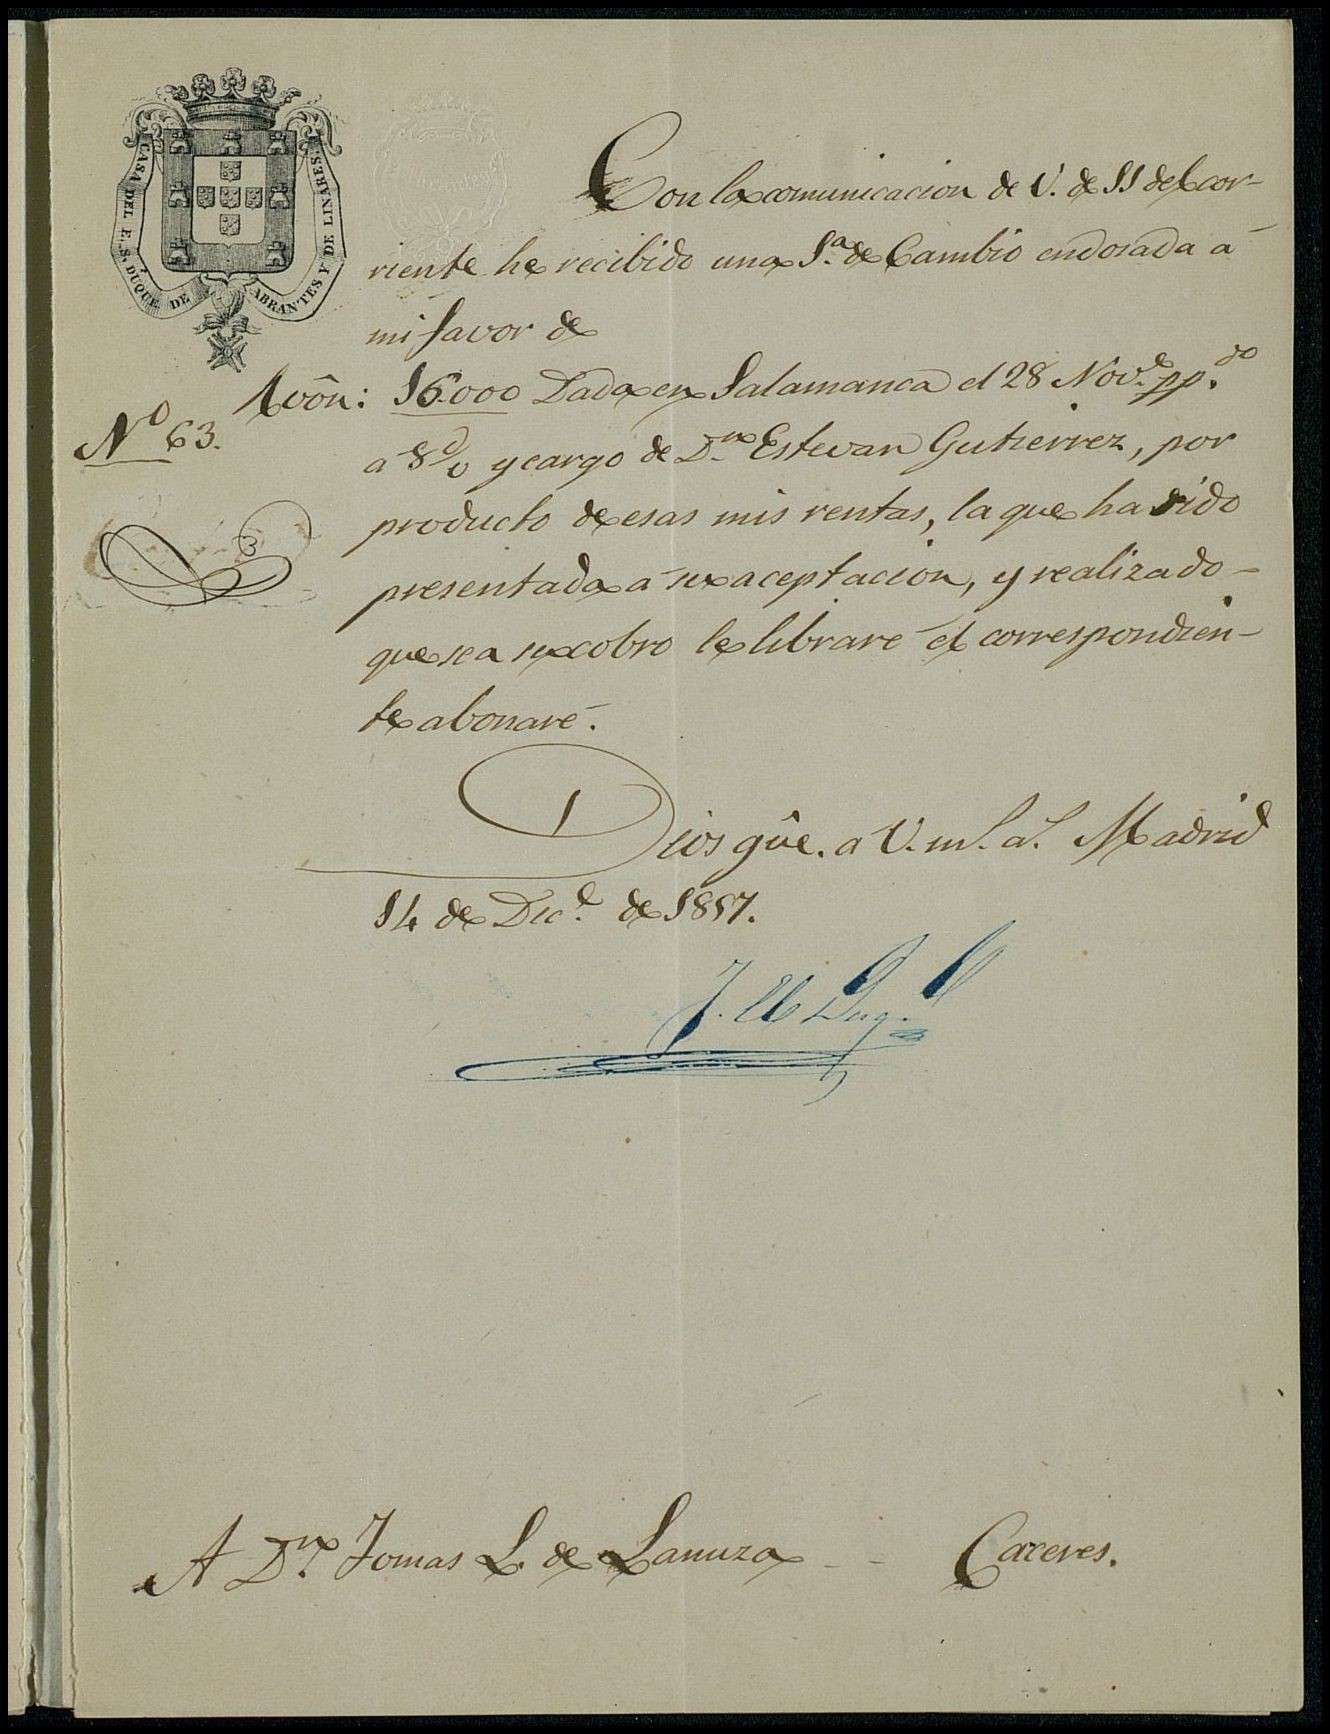 CASA DEL E. S. DUQUE DE ABRANTES Y DE LINARES.
Con la comunicacion de V. de 11 del cor-
riente he recibido una L.ª de Cambio endosada á
mi favor de
R.von: 16.000 Dada en Salamanca el 28 Nov.e pp.do
Nº 63.
a 8 d/v y cargo de D.n Estevan Gutierrez, por
producto de esas mis rentas, la que ha sido
presentada á su aceptacion, y realizado
que sea su cobro le libraré el correspondien-
te abonaré.
Dios gûe. a V. m.s a.s Madrid
14 de Dic.e de 1857.
A D.n Tomas L. de Lanuza -- Caceres.